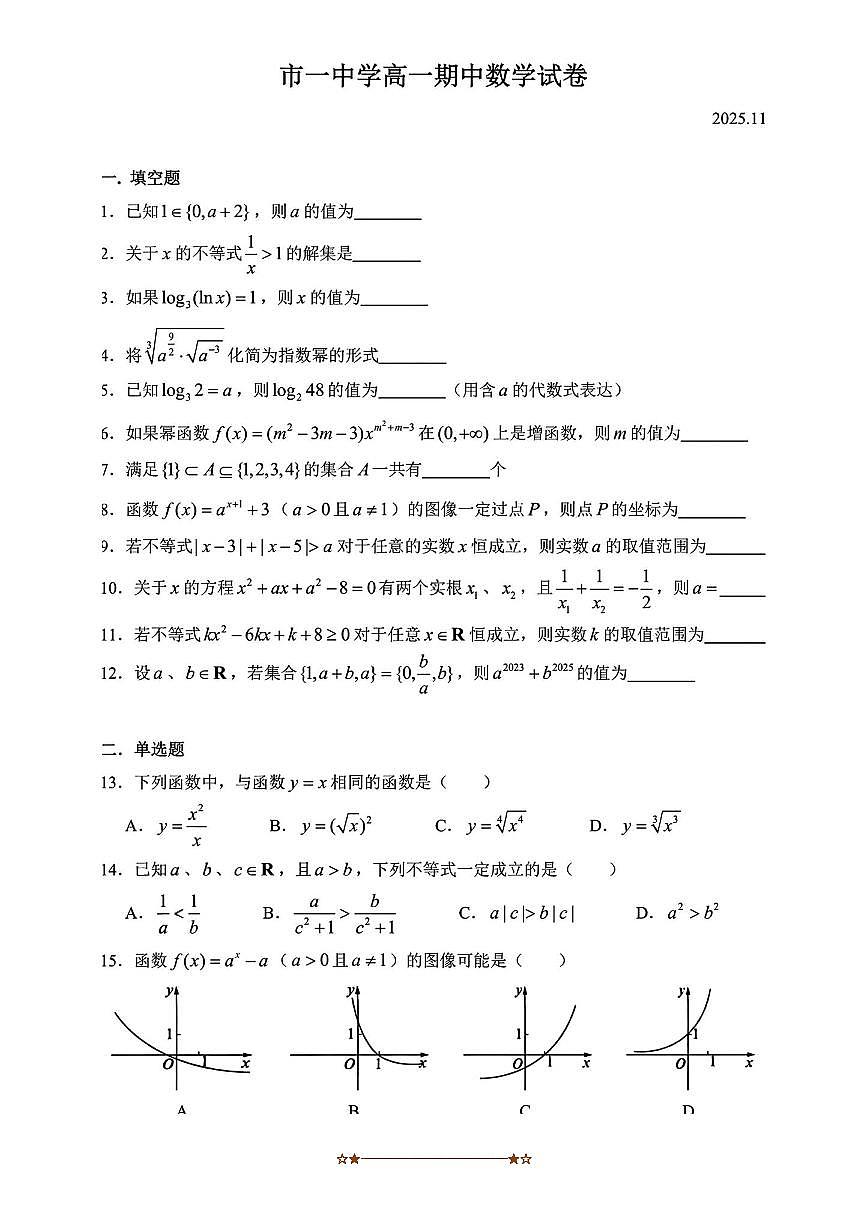 市一中学高一期中数学试卷
2025.11
一. 填空题
1. 已知1∈{0,a+2}，则a的值为________
2. 关于x的不等式\frac{1}{x}>1的解集是________
3. 如果log₃(ln x)=1，则x的值为________
4. 将\sqrt[3]{a^{\frac{9}{2}}·\sqrt{a^{-3}}}化简为指数幂的形式________
5. 已知log₃2=a，则log₂48的值为________（用含a的代数式表达）
6. 如果幂函数f(x)=(m²-3m-3)x^{m²+m-3}在(0,+∞)上是增函数，则m的值为________
7. 满足{1}⊂A⊆{1,2,3,4}的集合A一共有________个
8. 函数f(x)=a^{x+1}+3（a>0且a≠1）的图像一定过点P，则点P的坐标为________
9. 若不等式|x-3|+|x-5|>a对于任意的实数x恒成立，则实数a的取值范围为________
10. 关于x的方程x²+ax+a²-8=0有两个实根x₁、x₂，且\frac{1}{x₁}+\frac{1}{x₂}=-\frac{1}{2}，则a=______
11. 若不等式kx²-6kx+k+8≥0对于任意x∈R恒成立，则实数k的取值范围为________
12. 设a、b∈R，若集合{1,a+b,a}={0,\frac{b}{a},b}，则a^{2023}+b^{2025}的值为________
二. 单选题
13. 下列函数中，与函数y=x相同的函数是（ ）
A. y=\frac{x²}{x} B. y=(\sqrt{x})² C. y=\sqrt[4]{x⁴} D. y=\sqrt[3]{x³}
14. 已知a、b、c∈R，且a>b，下列不等式一定成立的是（ ）
A. \frac{1}{a}<\frac{1}{b} B. \frac{a}{c²+1}>\frac{b}{c²+1} C. a|c|>b|c| D. a²>b²
15. 函数f(x)=a^x-a（a>0且a≠1）的图像可能是（ ）
y 1 O 1 x y 1 O 1 x y 1 O 1 x y 1 O 1 x
A B C D